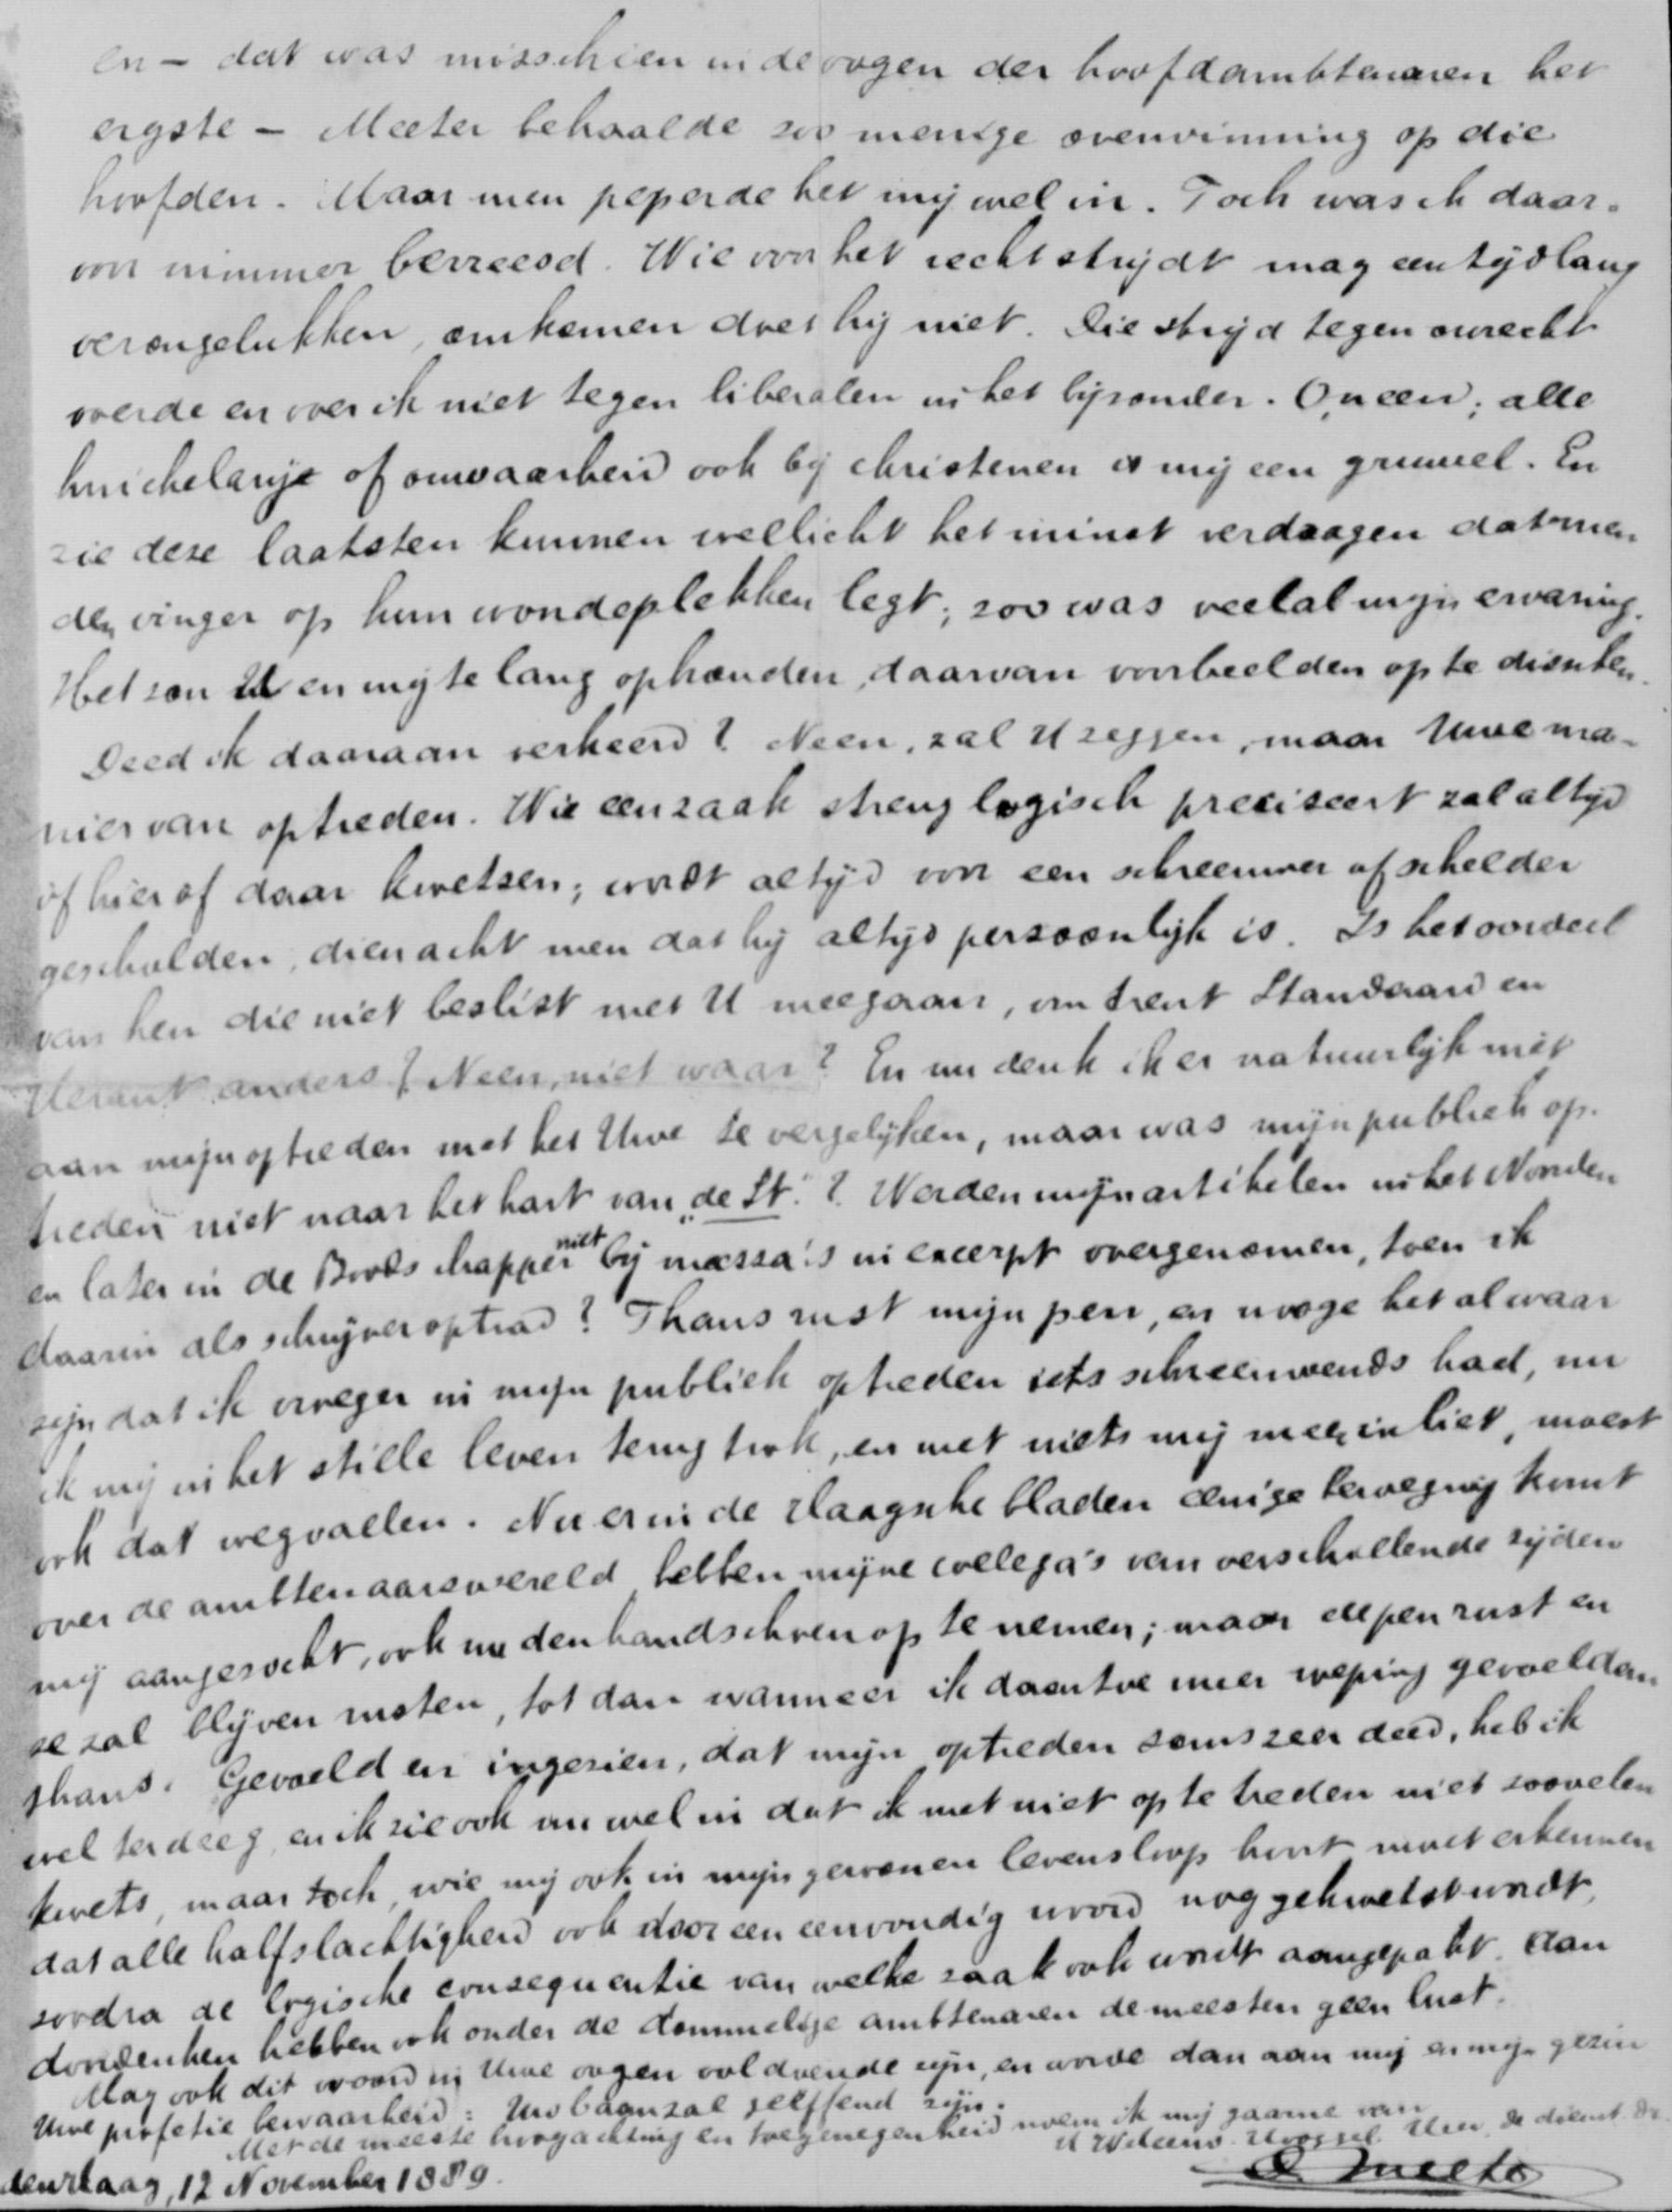 en – dat was misschien in de oogen der hoofdambtenaren het
ergste – Meeter behaalde zoo menige overwinning op die
hoofden. Maar men peperde het mij wel in. Toch was ik daar-
voor nimmer bevreesd. Wie voor het recht strijdt mag een tijdlang
verongelukken, omkomen doet hij niet. Die strijd tegen onrecht
voerde en voer ik niet tegen liberalen in het bijzonder. O, neen; alle
huichelarije of onwaarheid ook bij christenen is mij een gruwel. En
zie deze laatsten kunnen wellicht het minst verdragen dat men
den vinger op hun wondeplekken legt; zoo was veelal mijn ervaring.
Het zou U en mij te lang ophouden, daarvan voorbeelden op te disschen.
Deed ik daaraan verkeerd? Neen, zal U zeggen, maar Uwe ma-
nier van optreden. Wie een zaak streng logisch preciseert zal altijd
òf hier of daar kwetsen; wordt altijd voor een schreeuwer of schelder
gescholden, dien acht men dat hij altijd persoonlijk is. Is het oordeel
van hen die niet beslist met U meegaan, omtrent Standaard en
Heraut anders? Neen, niet waar? En nu denk ik er natuurlijk niet
aan mijn optreden met het Uwe te vergelijken, maar was mijn publiek op-
treden niet naar het hart van "de St."? Werden mijn artikelen in het Noorden
en later in de Boodschapper niet bij massa's in excerpt overgenomen, toen ik
daarin als schrijver optrad? Thans rust mijn pen, en moge het al waar
zijn dat ik vroeger in mijn publiek optreden iets schreeuwends had, nu
ik mij in het stille leven terug trok, en met niets mij meer inliet, moest
ook dat wegvallen. Nu er in de Haagsche bladen eenige beweging komt
over de ambtenaarswereld hebben mijne collega's van verschillende zijden
mij aangezocht, ook nu den handschoen op te nemen; maar de pen rust en
ze zal blijven rusten, tot dan wanneer ik daartoe meer roeping gevoel dan
thans. Gevoeld en ingezien, dat mijn optreden soms zeer deed, heb ik
wel terdeeg, en ik zie ook nu wel in dat ik met niet op te treden niet zoovelen
kwets, maar toch, wie mij ook in mijn gewonen levensloop hoort moet erkennen
dat alle halfslachtigheid ook door een eenvoudig woord nog gekwetst wordt,
zoodra de logische consequentie van welke zaak ook wordt aangepakt. Aan
doordenken hebben ook onder de dommelige ambtenaren de meesten geen lust.
Mag ook dit woord in Uwe oogen voldoende zijn, en worde dan aan mij en mijn gezin
Uwe profetie bewaarheid: Uw baan zal zelffend zijn.
Met de meeste hoogachting en toegenegenheid noem ik mij gaarne van
U WelEerw. Hooggel. Uw. de dienst
den Haag, 12 November 1889.
Meeter